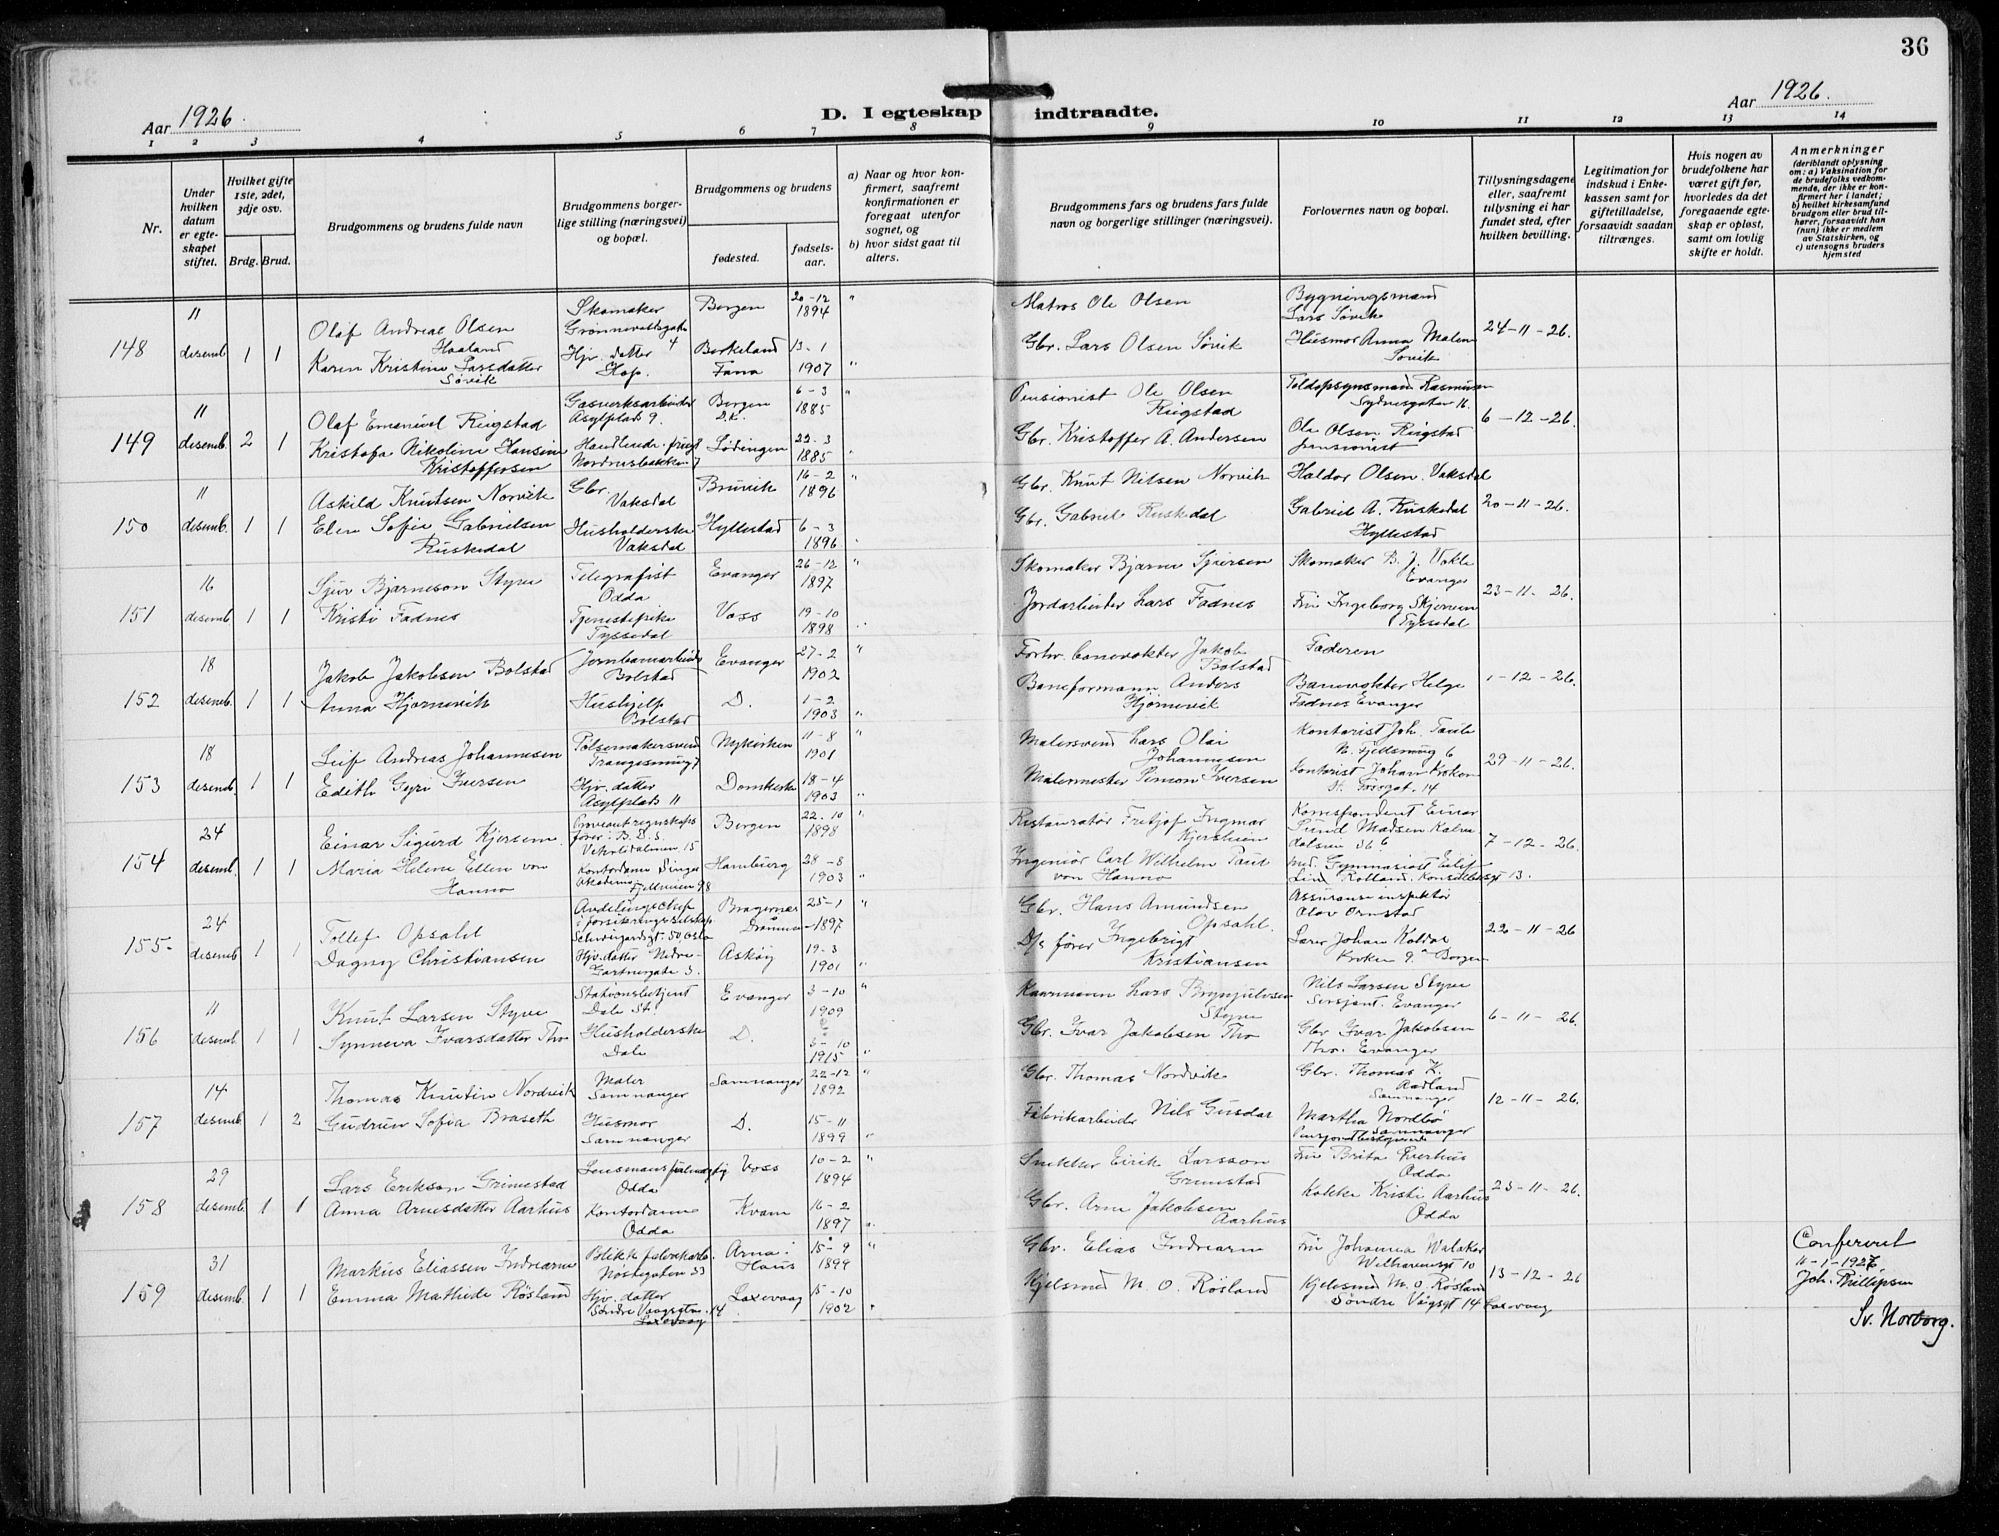 36
Aar 1926.
D. I egteskap indtraadte.
Aar 1926.
1 2 3 4 5 6 7 8 9 10 11 12 13 14
Nr.
Under hvilken datum er egteskapet stiftet.
Hvilket gifte 1ste, 2det, 3dje osv.
Brdg. Brud.
Brudgommens og brudens fulde navn
Brudgommens borgerlige stilling (næringsvei) og bopæl.
Brudgommens og brudens
fødested.
fødselsaar.
a) Naar og hvor konfirmert, saafremt konfirmationen er foregaat utenfor sognet, og
b) hvor sidst gaat til alters.
Brudgommens fars og brudens fars fulde navn og borgerlige stillinger (næringsvei).
Forlovernes navn og bopæl.
Tillysningsdagene eller, saafremt tillysning ei har fundet sted, efter hvilken bevilling.
Legitimation for indskud i Enkekassen samt for giftetilladelse, forsaavidt saadan tiltrænges.
Hvis nogen av brudefolkene har været gift før, hvorledes da det foregaaende egteskap er opløst, samt om lovlig skifte er holdt.
Anmerkninger
(deriblandt oplysning om: a) Vaksination for de brudefolks vedkommende, der ikke er konfirmert her i landet; b) hvilket kirkesamfund brudgom eller brud tilhører, forsaavidt han (hun) ikke er medlem av Statskirken, og c) utensogns bruders hjemsted
148 11 desemb. 1 1
Olaf Andreas Olsen Haaland
Skomaker Grönnevoldsgate 4
Bergen 20-12 1894 "
Matros Ole Olsen
Bygningsmand Lars Søvik
Karen Kristine Larsdatter Søvik
Hjv. datter Hop.
Birkeland Fana 13-1 1907 "
Gbr. Lars Olsen Søvik
Husmor Anna Malene Søvik
24-11-26.
149 11 desemb. 2 1
Olaf Emanuel Ringstad
Gasverksarbeider Asylplads 9.
Bergen D.K. 6-3 1885 "
Pensionist Ole Olsen Ringstad
Toldopsynsmand Rasmussen Sydnesgaten 16.
Kristofa Nikoline Hansine Kristoffersen
Nordnesbakken 7
Lødingen 22-3 1885 "
Gbr. Kristoffer A. Andersen
Ole Olsen Ringstad pensionist
6-12-26.
150 11 desemb. 1 1
Askild Knutsen Norvik
Gbr. Vaksdal
Bruvik 16-2 1896 "
Gbr. Knut Nilsen Norvik
Haldor Olsen. Vaksdal
Elen Sofie Gabrielsen Ruskedal
Husholderske Vaksdal
Hyllestad 6-3 1896 "
Gbr. Gabriel Ruskedal
Gabriel A. Ruskedal Hyllestad
20-11-26.
151 16 desemb. 1 1
Sjur Bjarneson Styve
Telegrafist Odda
Evanger 26-12 1897 "
Skomaker Bjarne Sjursen
Skomaker B. J. Evanger
Kristi Fadnes
Tjenestepike Tyssedal
Voss 19-10 1898 "
Jordarbeider Lars Fadnes
Fru Ingeborg Skjerven Tyssedal
23-11-26.
152 18 desemb. 1 1
Jakob Jakobsen Bolstad
Jernbanearbeider Bolstad
Evanger 27-2 1902 "
Forhv. banevokter Jakob Bolstad
Faderen
Anna Hjørnevik
Hushjelp Bolstad
D. 1-2 1903 "
Baneformann Anders Hjørnevik
Banevokter Helge Fadnes Evanger
1-12-26.
153 18 desemb. 1 1
Leif Andreas Johannesen
Pølsemakersvend Trangesmug 7
Nykirken 11-8 1901 "
Malersvend Lars Olai Johannesen
Kontorist Joh. N. Fjeldsmug 6
Edith Gyri Iversen
Hjv. datter Asylplads 11
Domkirke 18-4 1903 "
Malermester Simon Iversen
Kontorist Johan 14
29-11-26.
154 24 desemb. 1 1
Einar Sigurd
Proviantregnskapsfører B.D.S. 15
Bergen 22-10 1898 "
Restauratør Fritjof Ingmar
Korrespondent Einar Lund Madsen
Maria Helene Ellen von Hanno
Kontordame
Hamburg 28-8 1903 "
Ingeniør Carl Wilhelm Paul von Hanno
13.
7-12-26.
155 24 desemb. 1 1
Tollef Opsahl
Avdelingschef i forsikringsselskap Schweigaardsgt. 50 Oslo
Bragernæs Drammen 25-1 1897 "
Gbr. Hans Amundsen Opsahl.
Assuranseinspektør Olav Ornstad
Dagny Christiansen
Hjv. datter Nedre Gartnergate 3.
Askøy 19-3 1901 "
D/s fører Ingebrigt Kristiansen
Lærer Johan Koldal Kroken 9. Bergen
22-11-26
156 11 desemb. 1 1
Knut Larsen Styve
Stationsbetjent Dale St.
Evanger 3-10 1909 "
Lars Brynjulvsen Styve
Nils Larsen Styve Sersjant. Evanger
Synneva Ivarsdatter Tho
Husholderske Dale
D. 3-10 1915 "
Gbr. Ivar Jakobsen Tho
Gbr Ivar Jakobsen Tho. Evanger
6-11-26.
157 14 desemb. 1 2
Thomas Knutin Nordvik
Maler Samnanger
Samnanger 22-12 1892 "
Gbr. Thomas Nordvik
Gbr. Thomas K. Aadland Samnanger
Gudrun Sofia Braseth
Husmor Samnanger
D. 15-11 1899 "
Fabrikarbeider Nils Gusdal
Martha Nordbø Samnanger
12-11-26.
158 29 desemb. 1 1
Lars Erikson Grimestad
Lensmansfuldmegtig Odda
Voss 10-2 1894 "
Snekker Eirik Larsson Grimestad
Fru Brita Odda
Anna Arnesdatter Aarhus
Kontordame Odda
Kvam 16-2 1897 "
Gbr. Arne Jakobsen Aarhus
Kokke Kristi Aarhus Odda
23-11-26.
159 31 desemb. 1 1
Markus Eliassen Indrearne
Blikkfabrikarb. Nøstegaten 33
Arna i Haus 15-9 1899 "
Gbr. Elias Indrearn
Fru Johanna Walaker 10
Emma Mathilde Røsland
Hjv. datter Søndre Vaagsgtn. 14 Laxevaag
Laxevaag 15-10 1902 "
Kjelsmed M. O. Røsland
Kjelsmed M. O. Røsland Søndre Vågsgt 14 Laxevaag
13-12-26
Conferert
11-1-1927
Joh. Phillipsen
Sv. Norborg.